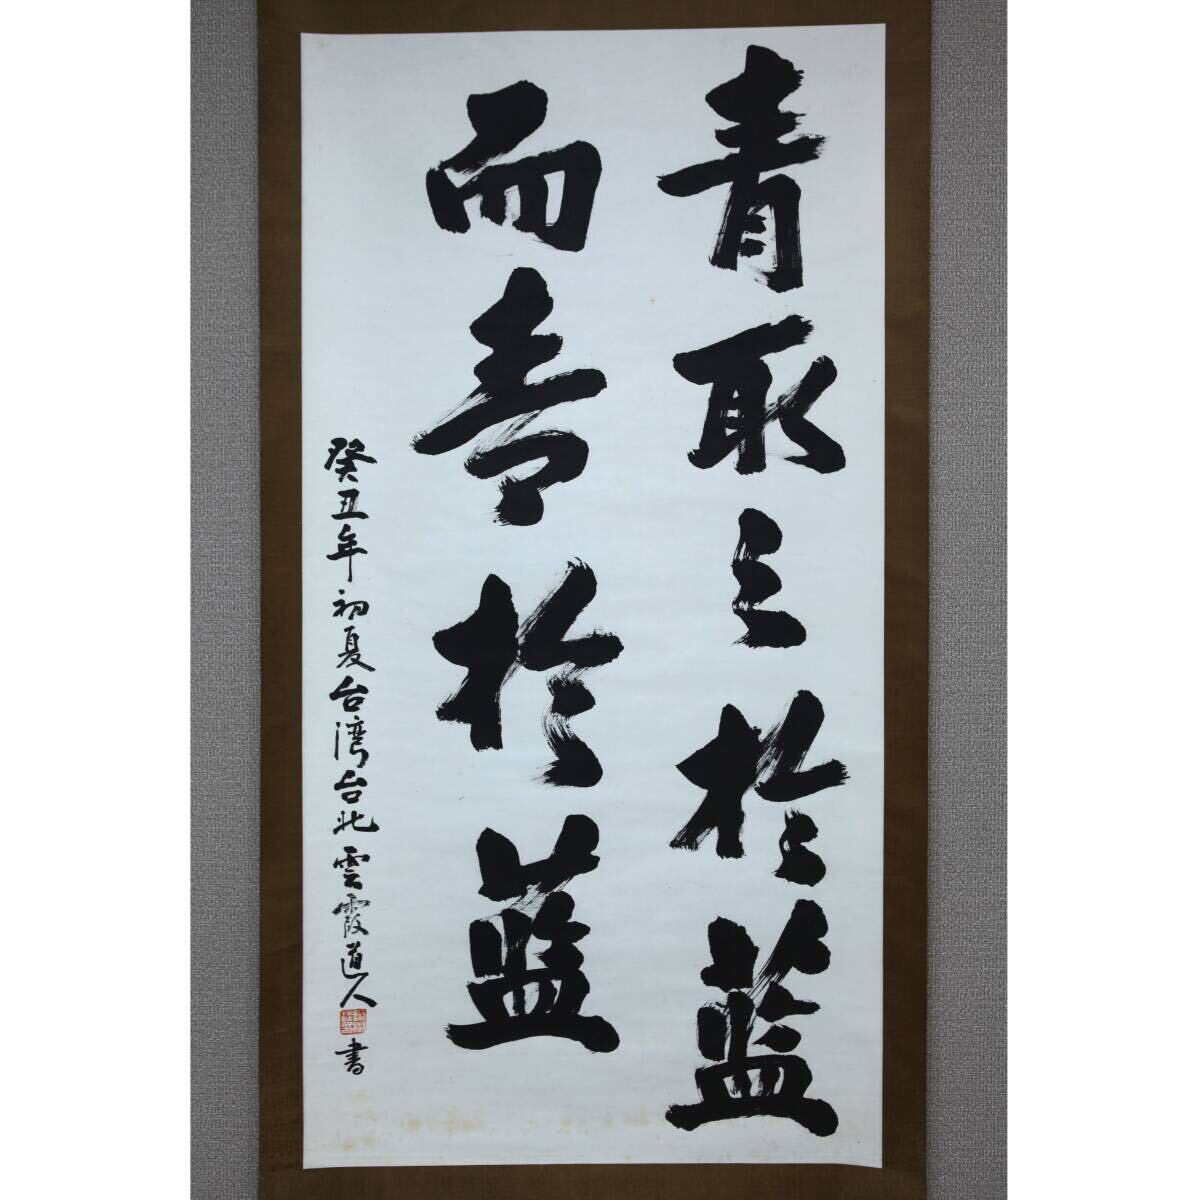 青取之於藍
而青於藍
癸丑年初夏台湾台北雲霞道人書